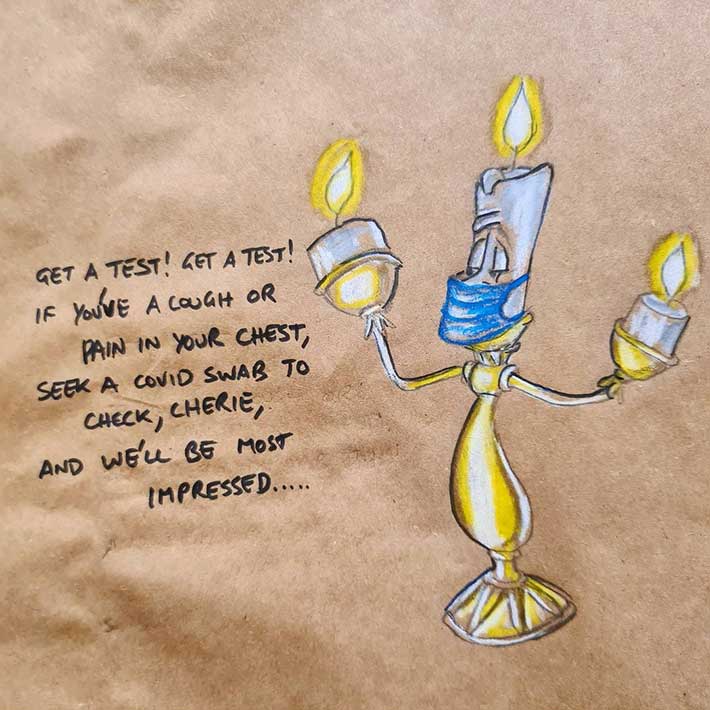 GET A TEST! GET A TEST!
IF YOU'VE A COUGH OR
PAIN IN YOUR CHEST,
SEEK A COVID SWAB TO
CHECK, CHERIE,
AND WE'LL BE MOST
IMPRESSED.....